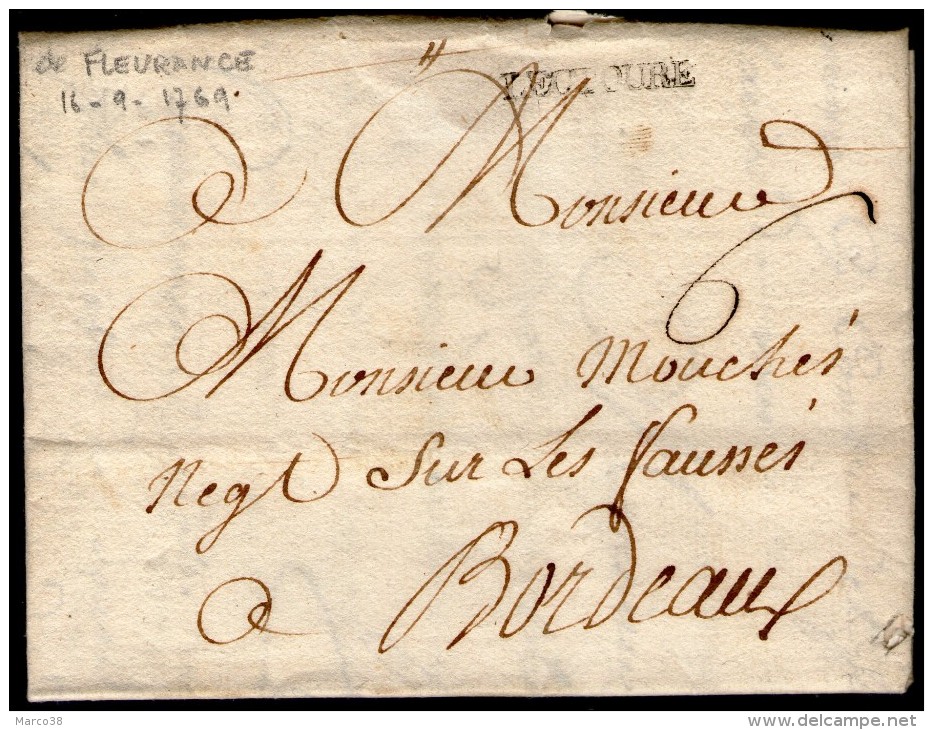 de FLEURANCE
16-9-1769.
LECTOURE
A Monsieur
6
Monsieur Mouchés
Negt Sur Les faussés
a Bordeaux
Marco38
www.delcampe.net